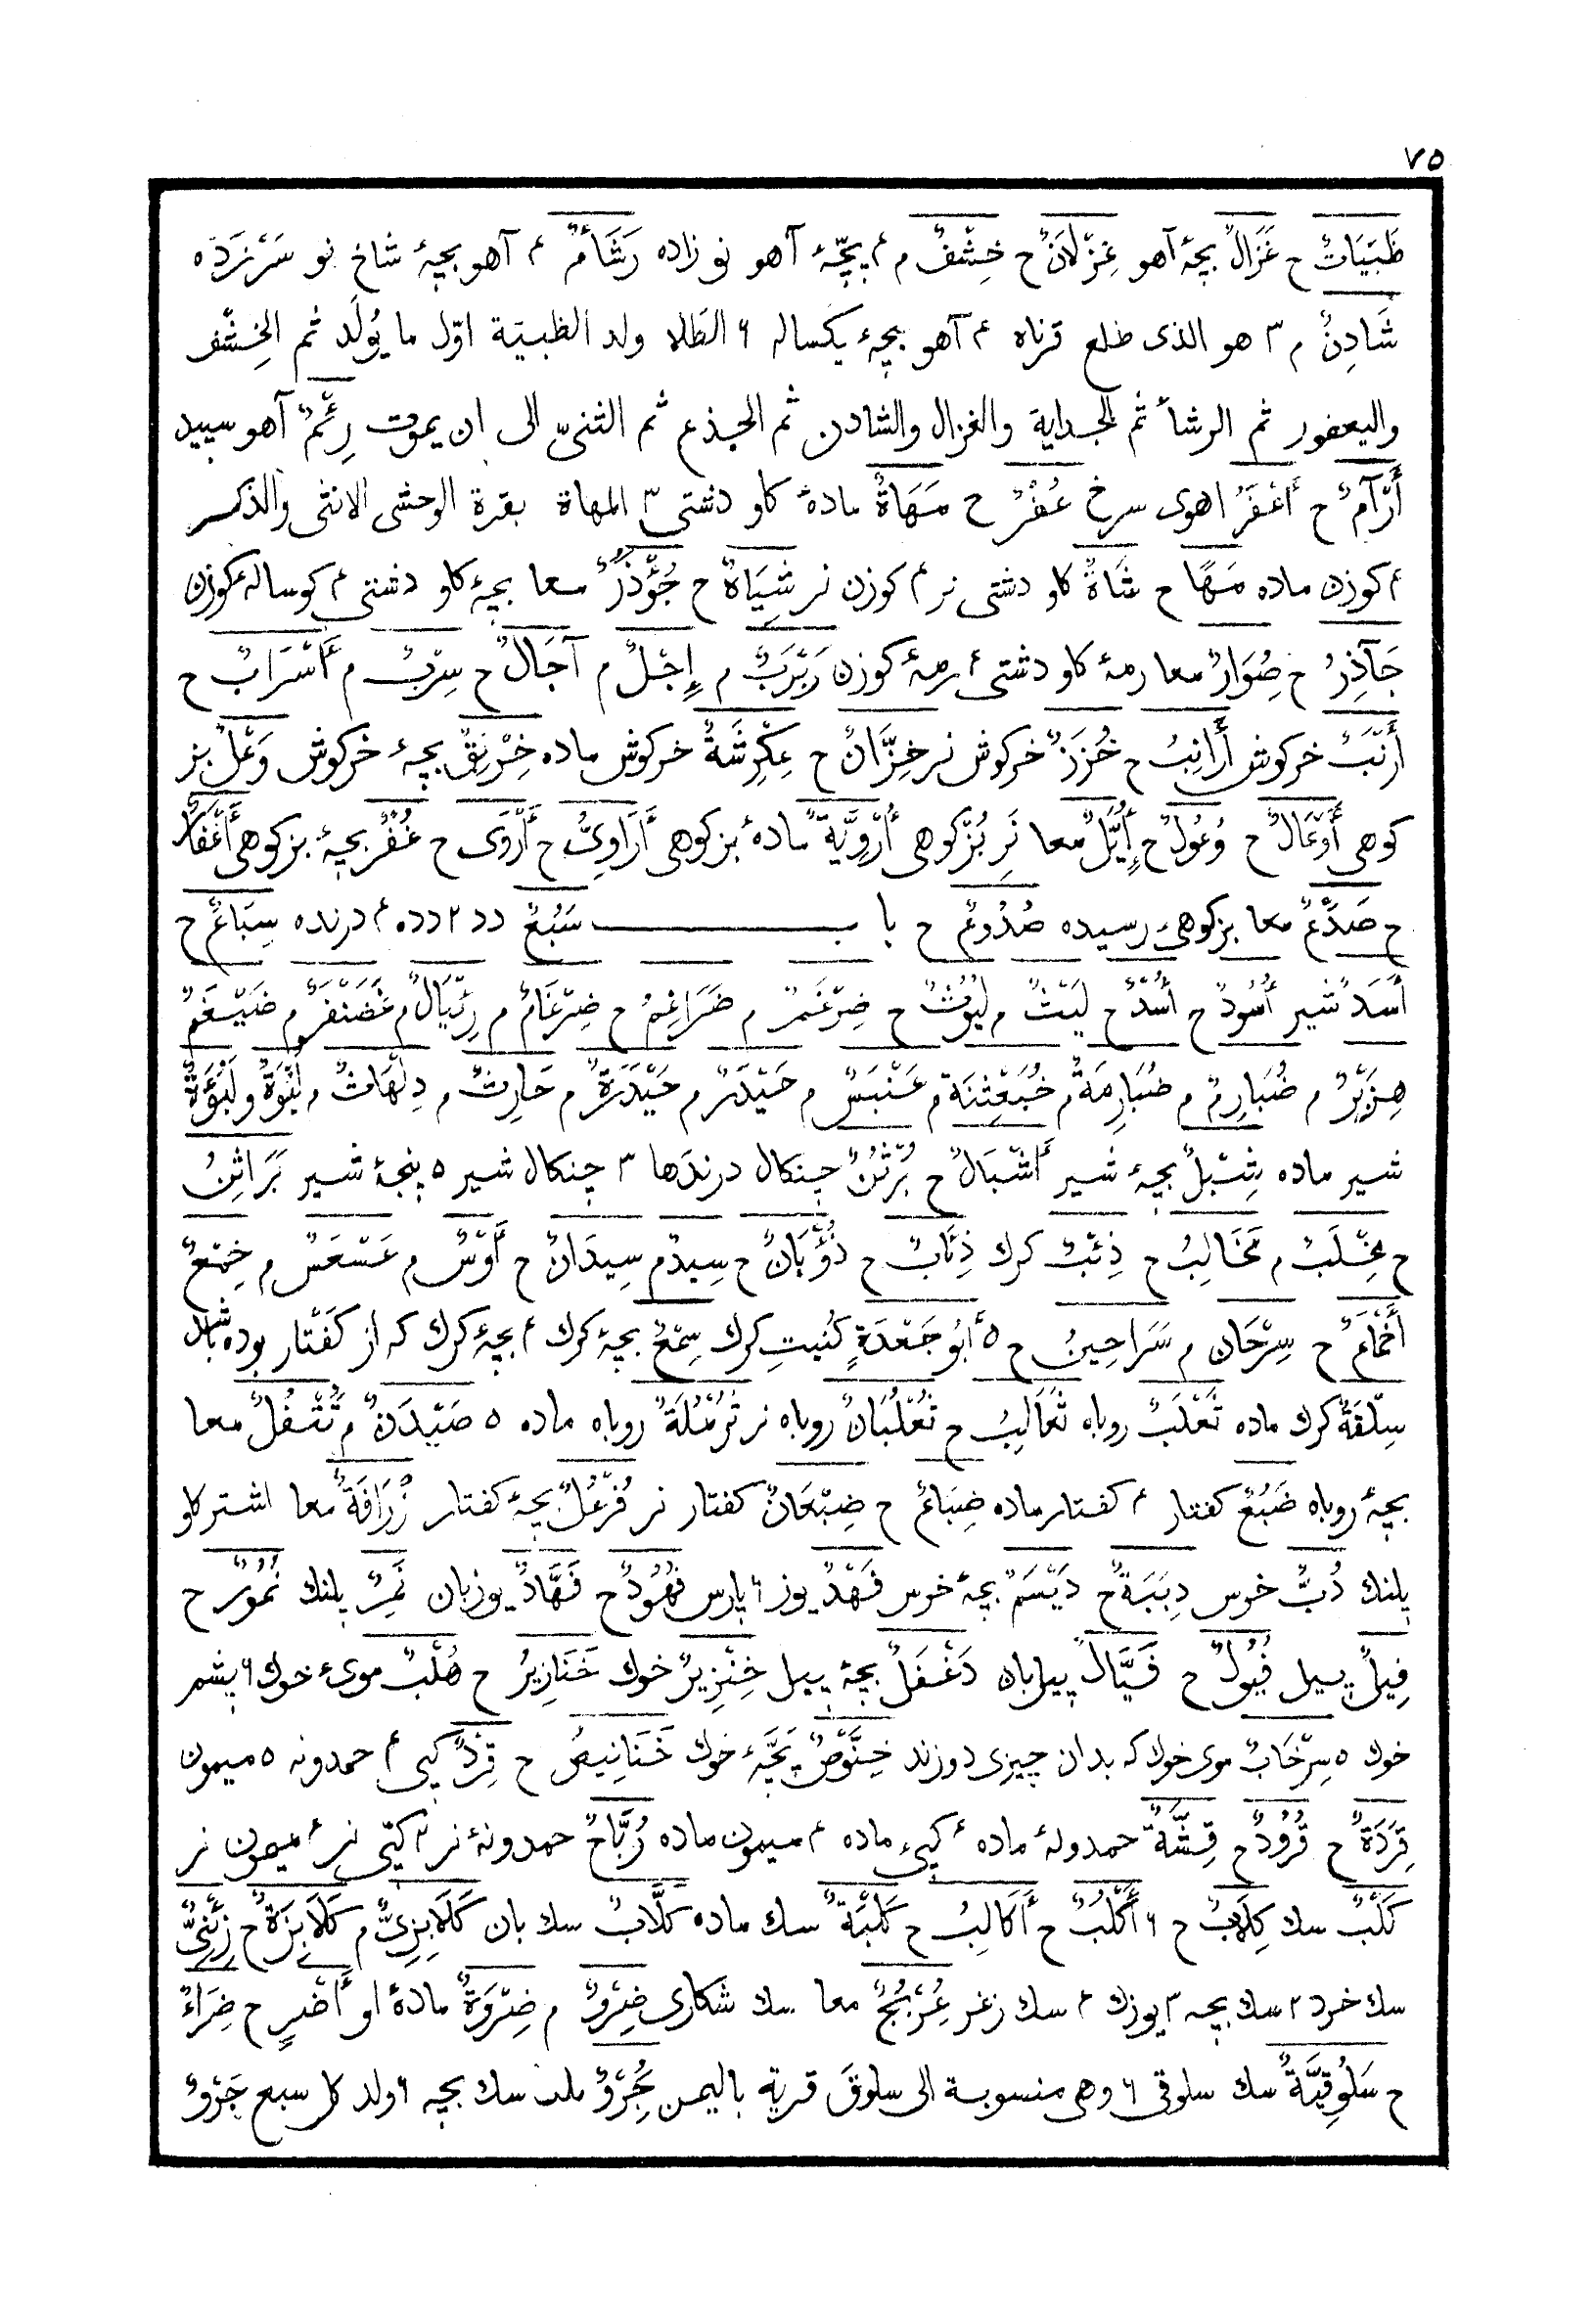 ٧٥
ظَبَيَاتٌ ح غَزَالٌ بچۀ آهو غِزْلَانٌ ح خِشْفٌ م ۴ بچّۀ آهو نو زاده رَشَأٌ م ۴ آهو بچۀ شاخ نو سَرْ زَدَه
شَادِنٌ م ٣ هو الذى طلع قرناه ۴ آهو بچۀ يكساله ۶ الطَلا ولد الظبية اوّل ما يُولَد ثم الخِشْف
واليعفور ثم الرشأ ثم الجداية والغزال والشادن ثم الجذع ثم الثنىّ الى ان يموت رِئْمٌ آهو سپيد
أَرْآمٌ ح أَعْفَرُ اهوى سرخ عُفْرٌ ح مَهَاةٌ مادۀ كاو دشتى ٣ المهاة بقرة الوحشى الانثى والذكر
۴ كوزن ماده مَهًا ح شَاةٌ كاو دشتى نر ۴ كوزن نر شِيَاهٌ ح جُؤْذُرٌ معا بچۀ كاو دشتى ۴ كوسالۀ كوزن
جَآذِرُ ح صُوَارٌ معا رمۀ كاو دشتى ۴ رمۀ كوزن رَبْرَبٌ م إِجْلٌ م آجَالٌ ح سِرْبٌ م أَسْرَابٌ ح
أَرْنَبٌ خركوش أَرَانِبُ ح خُزَزٌ خركوش نر خِزَّانٌ ح عِكْرِشَةٌ خركوش ماده خِرْنِقٌ بچۀ خركوش وَعْلٌ بز
كوهى أَوْعَالٌ ح وُعُولٌ ح إِيَّلٌ معا نَرِ بُزْ كوهى أُرْوِيَّةٌ مادۀ بز كوهى أَرَاوِىُّ ح أَرْوَى ح غُفْرٌ بچۀ بز كوهى أَغْفَارٌ
ح صَدَعٌ معا بز كوهى رسيده صُدُوعٌ ح با ب سَبُعٌ دد ٢ دده ۴ درنده سِبَاعٌ ح
أَسَدٌ شير أُسُودٌ ح أُسْدٌ ح لَيْثٌ م لُيُوثٌ ح ضِرْغَمٌ م ضَرَاغِمُ ح ضِرْغَامٌ م رِئْبَالٌ م غَضَنْفَرٌ م ضَيْغَمٌ
هِزَبْرٌ م ضُبَارِمٌ م ضُبَارِمَةٌ م خُبَعْثِنَةٌ م عَنْبَسٌ م حَيْدَرٌ م حَيْدَرَةٌ م حَارِثٌ م دِلْهَاثٌ م لَبْوَةٌ و لَبُؤَةٌ
شير ماده شِبْلٌ بچۀ شير أَشْبَالٌ ح بُرْثُنٌ چنكال درندَها ٣ چنكال شير ٥ پنجۀ شير بَرَاثِنُ
ح مِخْلَبٌ م مَخَالِبُ ح ذِئْبٌ كرك ذِئَابٌ ح ذُؤْبَانٌ ح سِيدٌ م سِيدَانٌ ح أَوْسٌ م عَسْعَسٌ م خِمْعٌ
أَخْمَاعٌ ح سِرْحَان م سَرَاحِينُ ح ٥ أَبُو جَعْدَةٍ كُنيتِ كرك سِمْعٌ بچۀ كرك ۴ بچۀ كرك كه از كَفْتار بوده باشد
سِلْقَةٌ كرك ماده ثَعْلَبٌ روباه ثَعَالِبُ ح ثُعْلُبَانٌ روباه نر ثُرْمُلَةٌ روباه ماده ٥ صَيْدَنٌ م تُتْفُلٌ معا
بچۀ روباه ضَبُعٌ كفتار ۴ كفتار ماده ضِبَاعٌ ح ضِبْعَانٌ كفتار نر فُرْعُلٌ بچۀ كفتار زُرَافَةٌ معا اشتر كاو
پلنك دُبٌّ خوس دِبَبَةٌ ح دَيْسَمٌ بچۀ خوس فَهْدٌ يوز ۶ پارس فُهُودٌ ح فَهَّادٌ يوزبان نَمِرٌ پلنك نُمُورٌ ح
فِيلٌ پيل فُيُولٌ ح فَيَّالٌ پيلبان دَغْفَلٌ بچۀ پيل خِنْزِيرٌ خوك خَنَازِيرُ ح هُلْبٌ موىء خوك ۶ پشم
خوك ٥ سِرْخَابٌ موى خوك كه بدان چيزى دوزند خِنَّوْصٌ بَچَّۀ خوك خَنَانِيصُ ح قِرْدٌ كپى ۴ حمدونه ٥ ميمون
قِرَدَةٌ ح قُرُودٌ ح قِشَّةٌ حمدولۀ ماده ۴ كپىء ماده ۴ ميمون ماده رُبَّاحٌ حمدونۀ نر ٣ كپّى نر ۴ ميمون نر
كَلْبٌ سك كِلَابٌ ح ۶ أَكْلُبٌ ح أَكَالِبُ ح كَلْبَةٌ سك ماده كَلَّابٌ سك بان كَلَابِزِىٌّ م كَلَابِزَةٌ ح زِئْنِىٌّ
سك خرد ٢ سك بچه ٣ يوزك ۴ سك زغر عُرْبُجٌ معا سك شكارى ضِرْوٌ م ضِرْوَةٌ مادۀ او أَضْرٍ ح ضِرَاءٌ
ح سَلُوقِيَّةٌ سك سلوقى ۶ وهى منسوبة الى سلوقَ قرية باليمن جُِرْوٌ سك بچه ۶ ولد كل سبع جَرْوٌ